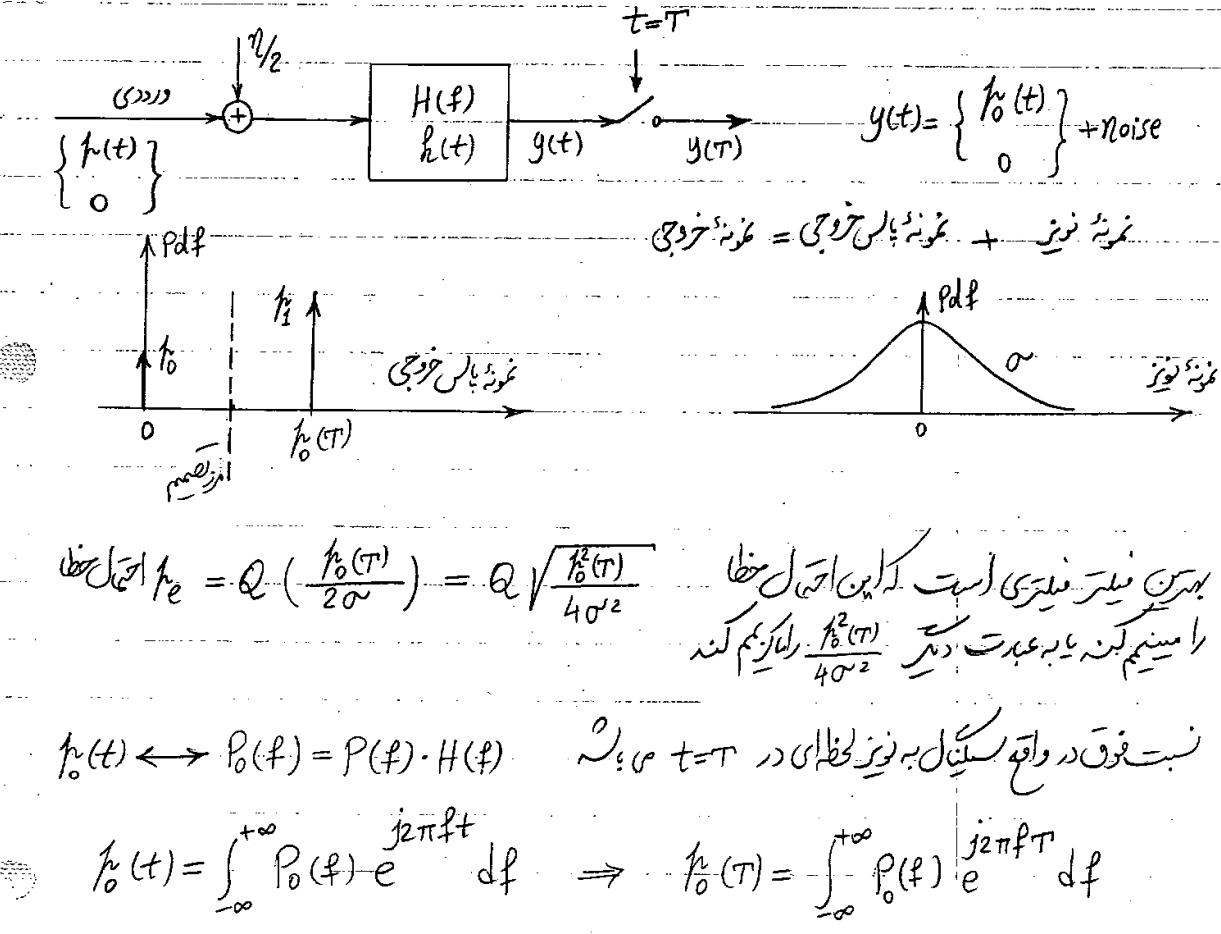 t=T
η/2
ورودی
{ p(t) 0 }
H(f)
h(t)
y(t)
y(T)
y(t) = { p₀(t) 0 } + noise
نمونهٔ نویز + نمونهٔ پالس خروجی = نمونهٔ خروجی
Pdf
p₀
p₁
نمونهٔ پالس خروجی
0
p₀(T)
مرز تصمیم
Pdf
σ
نمونهٔ نویز
0
احتمال خطا pₑ = Q ( p₀(T) / 2σ ) = Q √( p₀²(T) / 4σ² )
بهترین فیلتر فیلتری است که این احتمال خطا
را مینیمم کند یا به عبارت دیگر p₀²(T) / 4σ² را ماکزیمم کند
نسبت فوق در واقع سیگنال به نویز لحظه‌ای در t=T می باشد
p₀(t) ↔ P₀(f) = P(f) · H(f)
p₀(t) = ∫_{-∞}^{+∞} P₀(f) e^{j2πft} df ⇒ p₀(T) = ∫_{-∞}^{+∞} P₀(f) e^{j2πfT} df